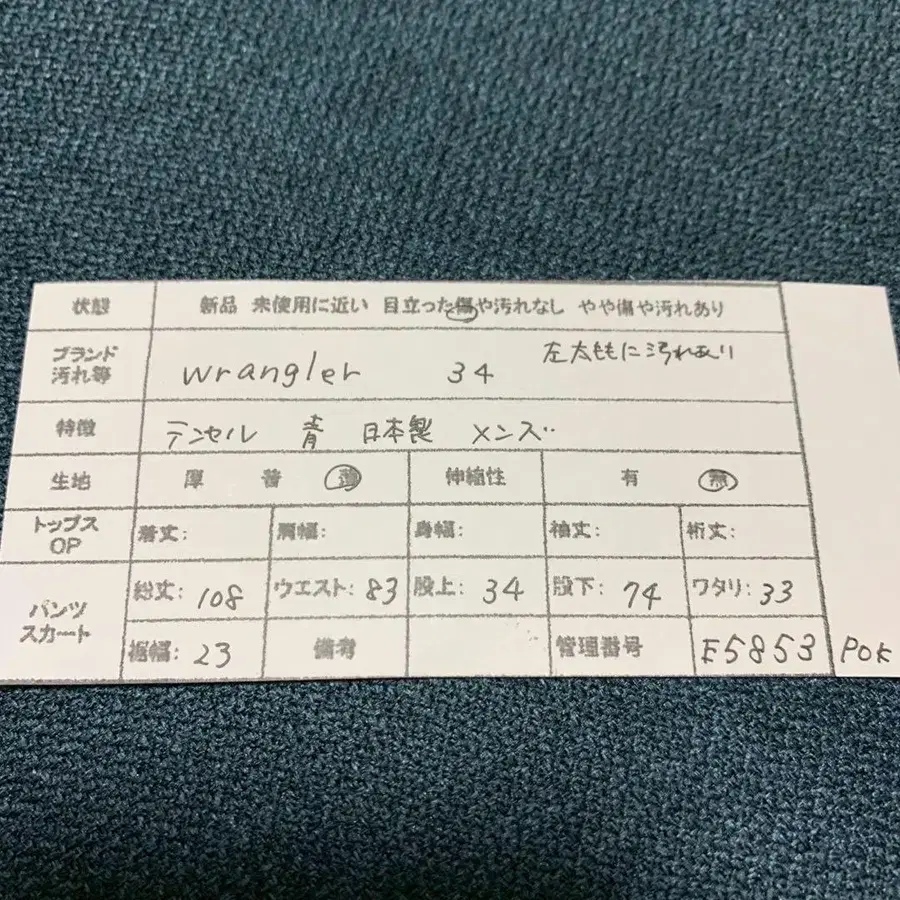 状態 新品 未使用に近い 目立った傷や汚れなし やや傷や汚れあり
ブランド 汚れ等 wrangler 34 左太ももに汚れあり
特徴 テンセル 青 日本製 メンズ
生地 厚 普 薄 伸縮性 有 無
トップス OP 着丈: 肩幅: 身幅: 袖丈: 裄丈:
パンツ スカート 総丈: 108 ウエスト: 83 股上: 34 股下: 74 ワタリ: 33
裾幅: 23 備考 管理番号 E5853 POK